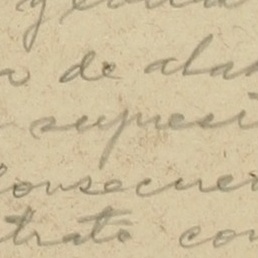 y
a de ala
supresi
onsecue
trato con